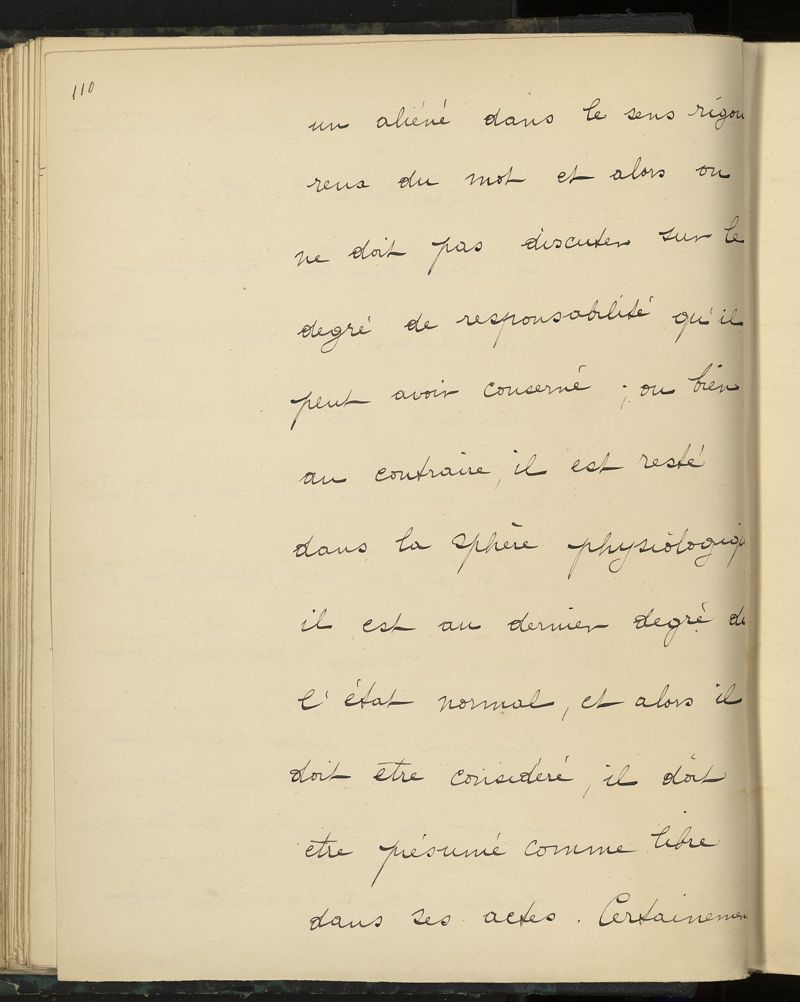 110
un aliéné dans le sens rigou
reux du mot et alors on
ne doit pas discuter sur le
degré de responsabilité qu'il
peut avoir conservé ; ou bien
au contraire, il est resté
dans la sphère physiologiqu
il est au dernier degré de
l'état normal, et alors il
doit etre considéré, il doit
etre présumé comme libre
dans ses actes. Certainemen